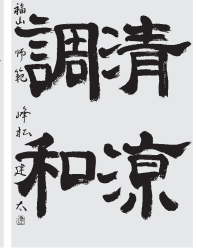 清涼
調和
福山師範 峰松建太